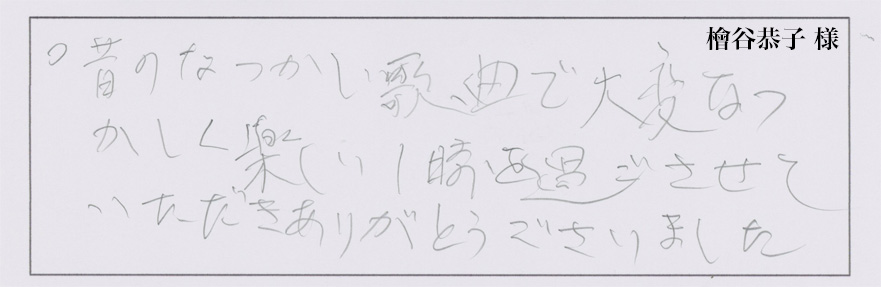 檜谷恭子 様
○昔のなつかしい歌、曲で大変なつ
かしく楽しい1時を過ごさせて
いただきありがとうございました